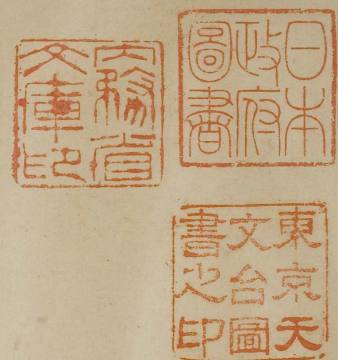 日本
政府
圖書
內務省
文庫印
東京天
文台圖
書之印